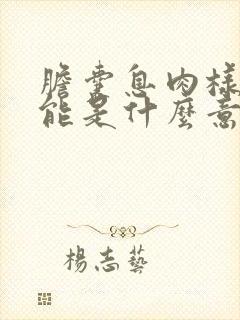 膽囊息肉樣
能是什麼意
楊志藝